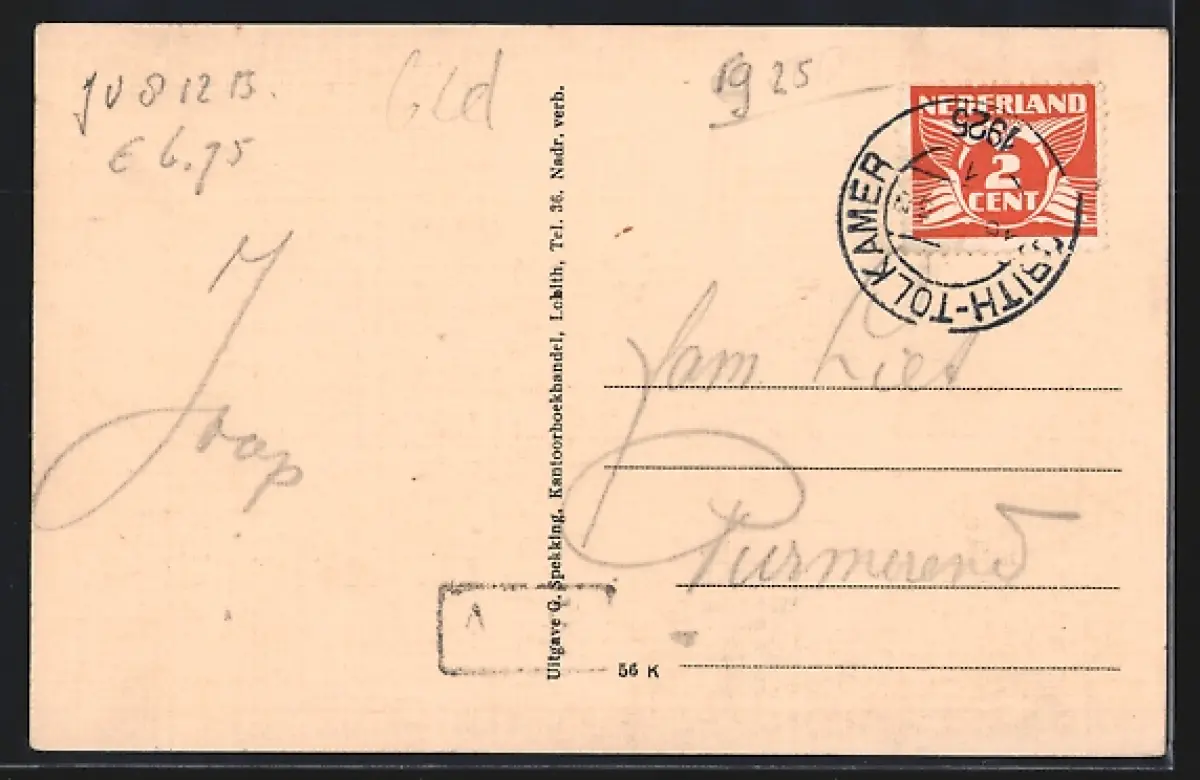 JV 8 12 B.
€ 6.75
Gld
1925
NEDERLAND
2
CENT
1925
LOBITH-TOLKAMER
Jaap
Fam Liet
Purmerend
Uitgave G. Spekking, Kantoorboekhandel, Lobith, Tel. 36. Nadr. verb.
A
56 K